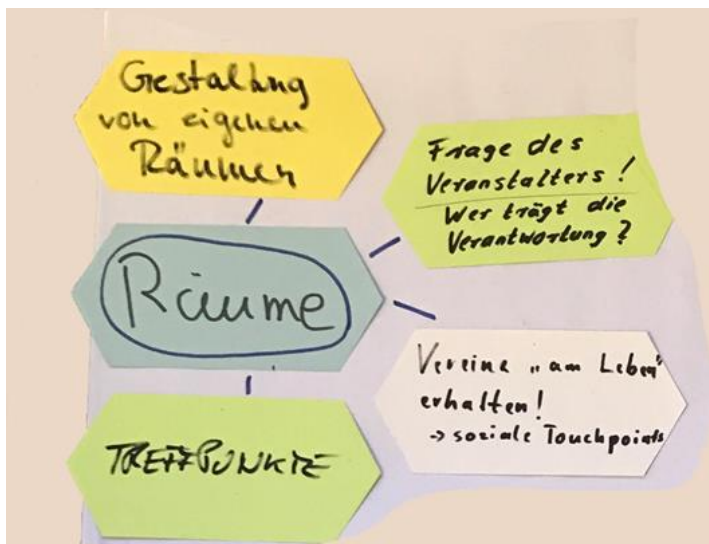 Gestaltung
von eigenen
Räumen
Frage des
Veranstalters!
Wer trägt die
Verantwortung?
Räume
Vereine „am Leben"
erhalten!
→ soziale Touchpoints
TREFFPUNKTE